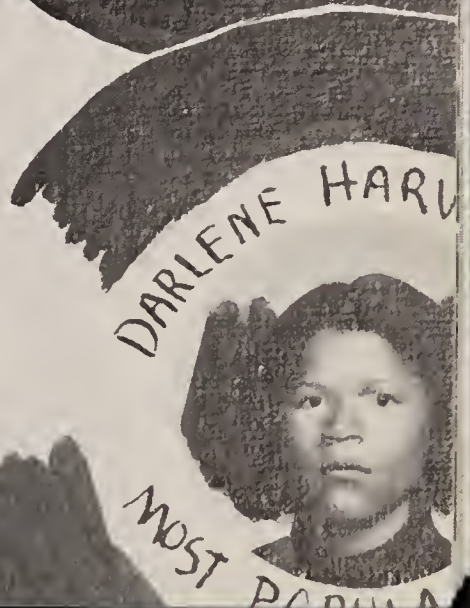 DARLENE HARV
MOST POPULA